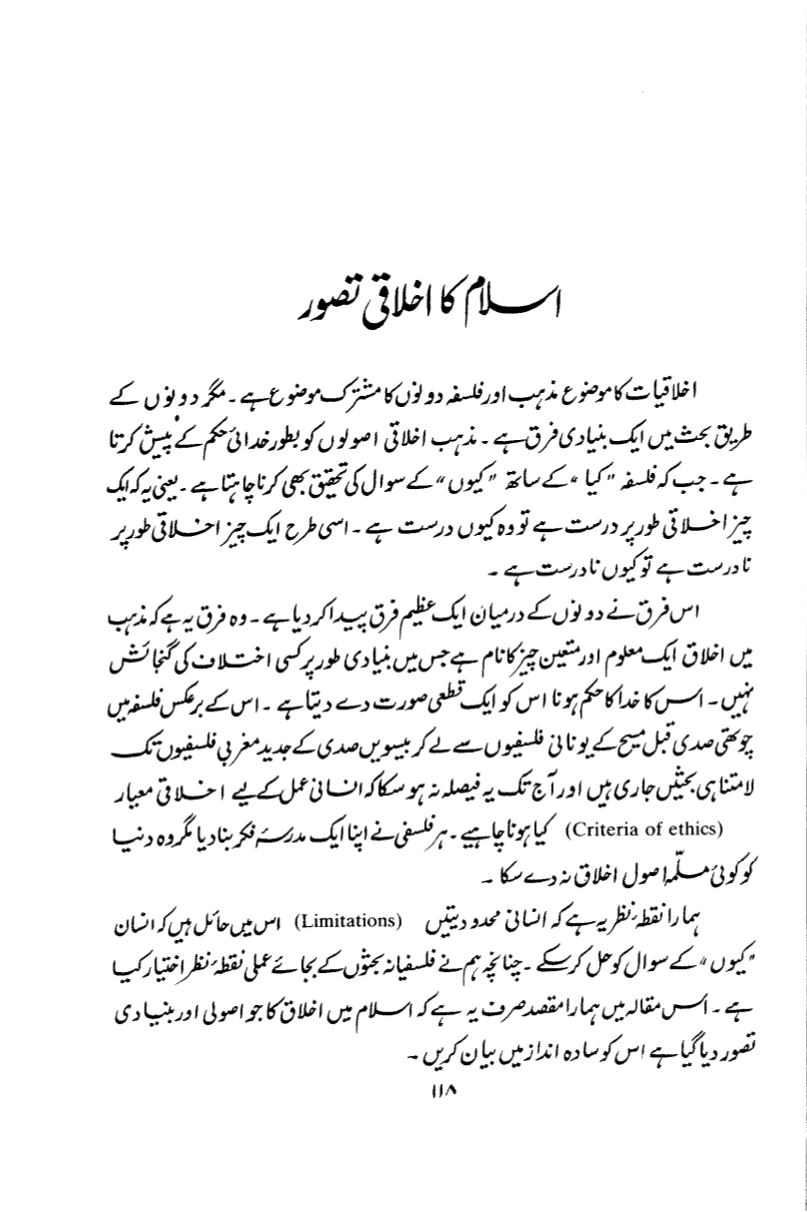 اسلام کا اخلاقی تصور
اخلاقیات کا موضوع مذہب اور فلسفہ دونوں کا مشترک موضوع ہے۔ مگر دونوں کے
طریق بحث میں ایک بنیادی فرق ہے۔ مذہب اخلاقی اصولوں کو بطور خدائی حکم کے پیش کرتا
ہے۔ جب کہ فلسفہ "کیا" کے ساتھ "کیوں" کے سوال کی تحقیق بھی کرنا چاہتا ہے۔ یعنی یہ کہ ایک
چیز اخلاقی طور پر درست ہے تو وہ کیوں درست ہے۔ اسی طرح ایک چیز اخلاقی طور پر
نادرست ہے تو کیوں نادرست ہے۔
اس فرق نے دونوں کے درمیان ایک عظیم فرق پیدا کر دیا ہے۔ وہ فرق یہ ہے کہ مذہب
میں اخلاق ایک معلوم اور متعین چیز کا نام ہے جس میں بنیادی طور پر کسی اختلاف کی گنجائش
نہیں۔ اس کا خدا کا حکم ہونا اس کو ایک قطعی صورت دے دیتا ہے۔ اس کے برعکس فلسفہ میں
چوتھی صدی قبل مسیح کے یونانی فلسفیوں سے لے کر بیسویں صدی کے جدید مغربی فلسفیوں تک
لامتناہی بحثیں جاری ہیں اور آج تک یہ فیصلہ نہ ہو سکا کہ انسانی عمل کے لیے اخلاقی معیار
(Criteria of ethics) کیا ہونا چاہیے۔ ہر فلسفی نے اپنا ایک مدرسۂ فکر بنا دیا مگر وہ دنیا
کو کوئی مسلّمہ اصول اخلاق نہ دے سکا۔
ہمارا نقطۂ نظر یہ ہے کہ انسانی محدودیتیں (Limitations) اس میں حائل ہیں کہ انسان
"کیوں" کے سوال کو حل کر سکے۔ چنانچہ ہم نے فلسفیانہ بحثوں کے بجائے عملی نقطۂ نظر اختیار کیا
ہے۔ اس مقالہ میں ہمارا مقصد صرف یہ ہے کہ اسلام میں اخلاق کا جو اصولی اور بنیادی
تصور دیا گیا ہے اس کو سادہ انداز میں بیان کریں۔
۱۱۸